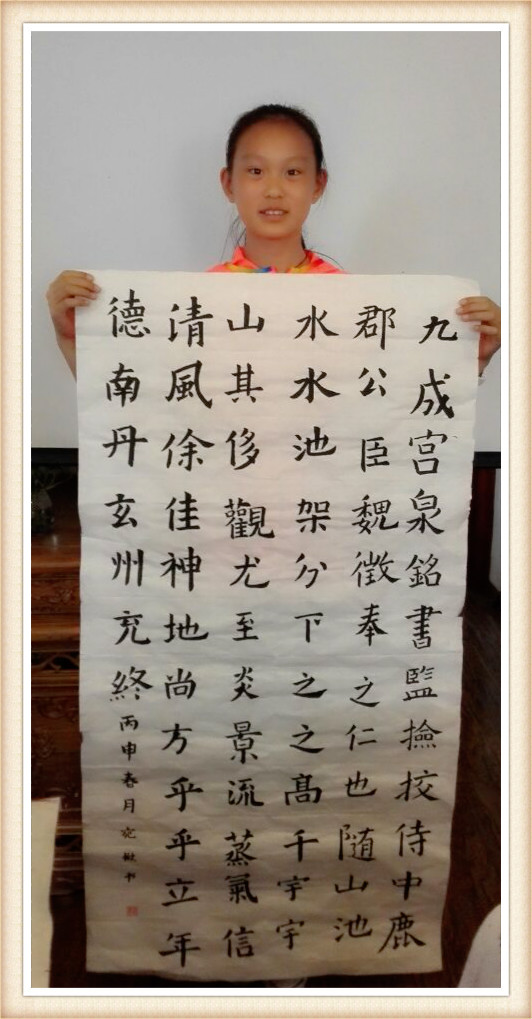 九成宮泉銘書監撿挍侍中鹿
郡公臣魏徵奉之仁也随山池
水水池架分下之之高千宇宇
山其侈觀尤至炎景流蒸氣信
清風徐佳神地尚方乎乎立年
德南丹玄州充終
丙申春月